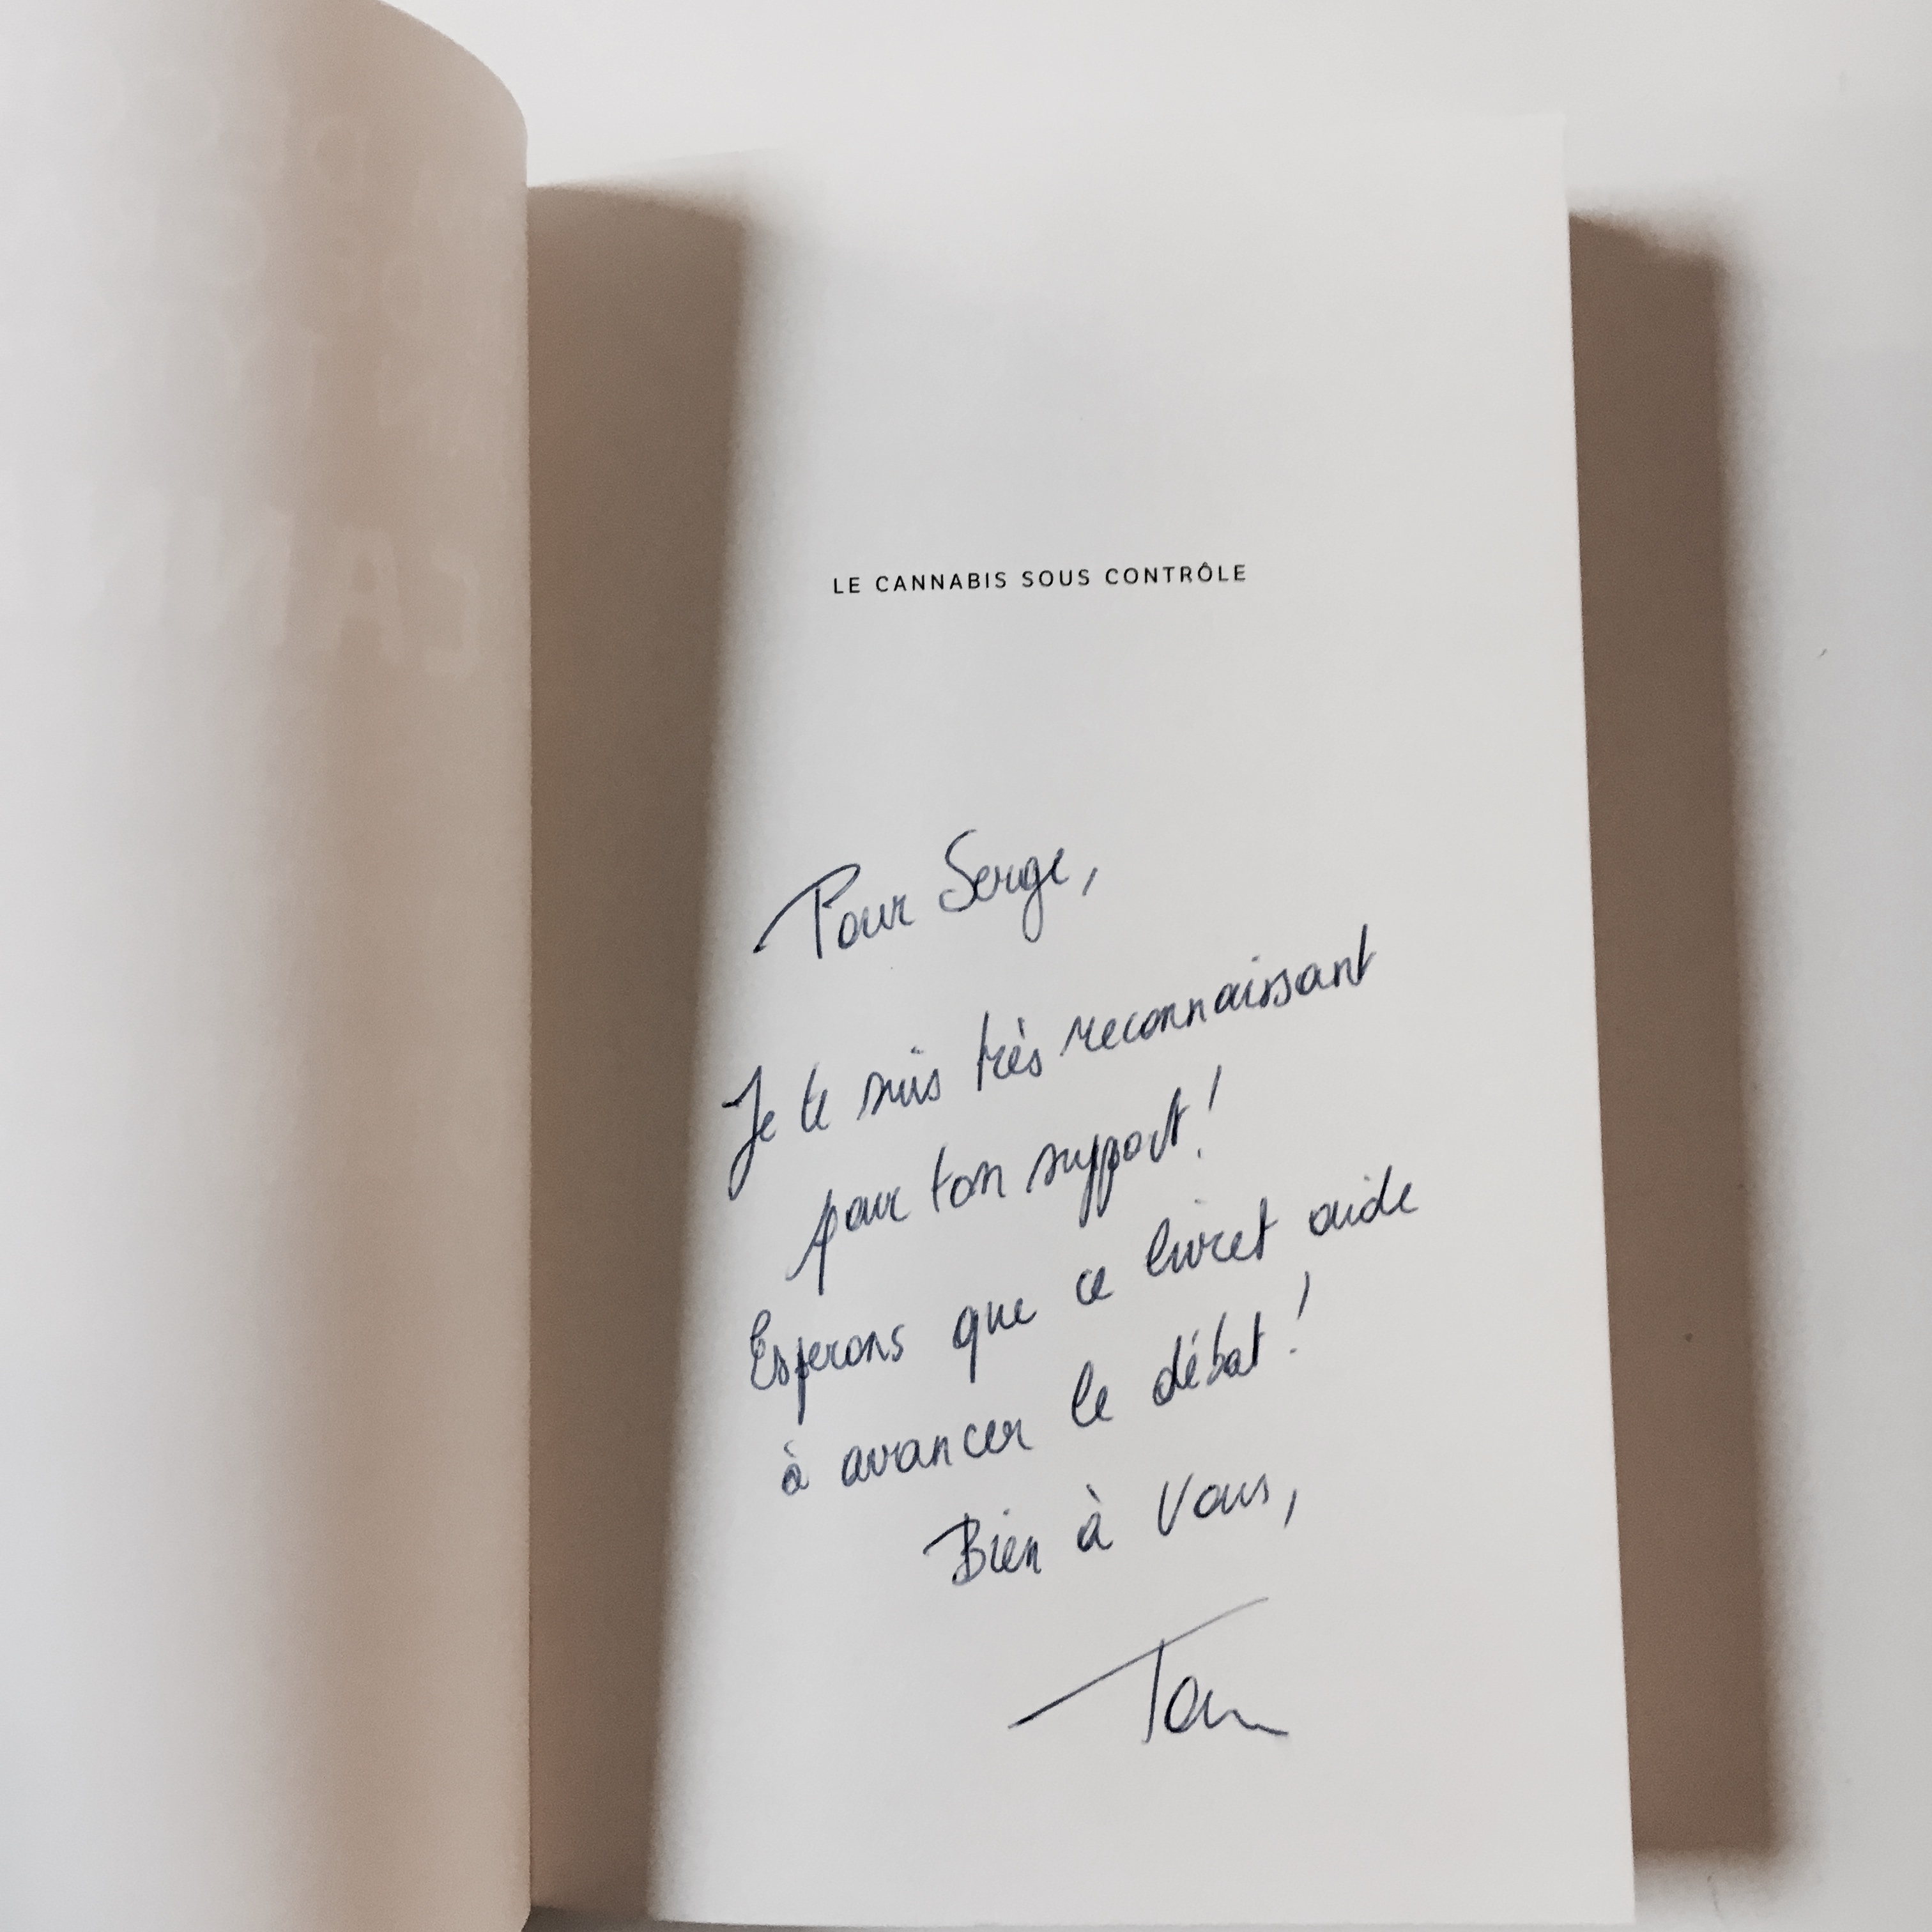 LE CANNABIS SOUS CONTRÔLE
Pour Serge,
Je te suis très reconnaissant
pour ton support!
Esperons que ce livret aide
à avancer le débat!
Bien à vous,
Tom